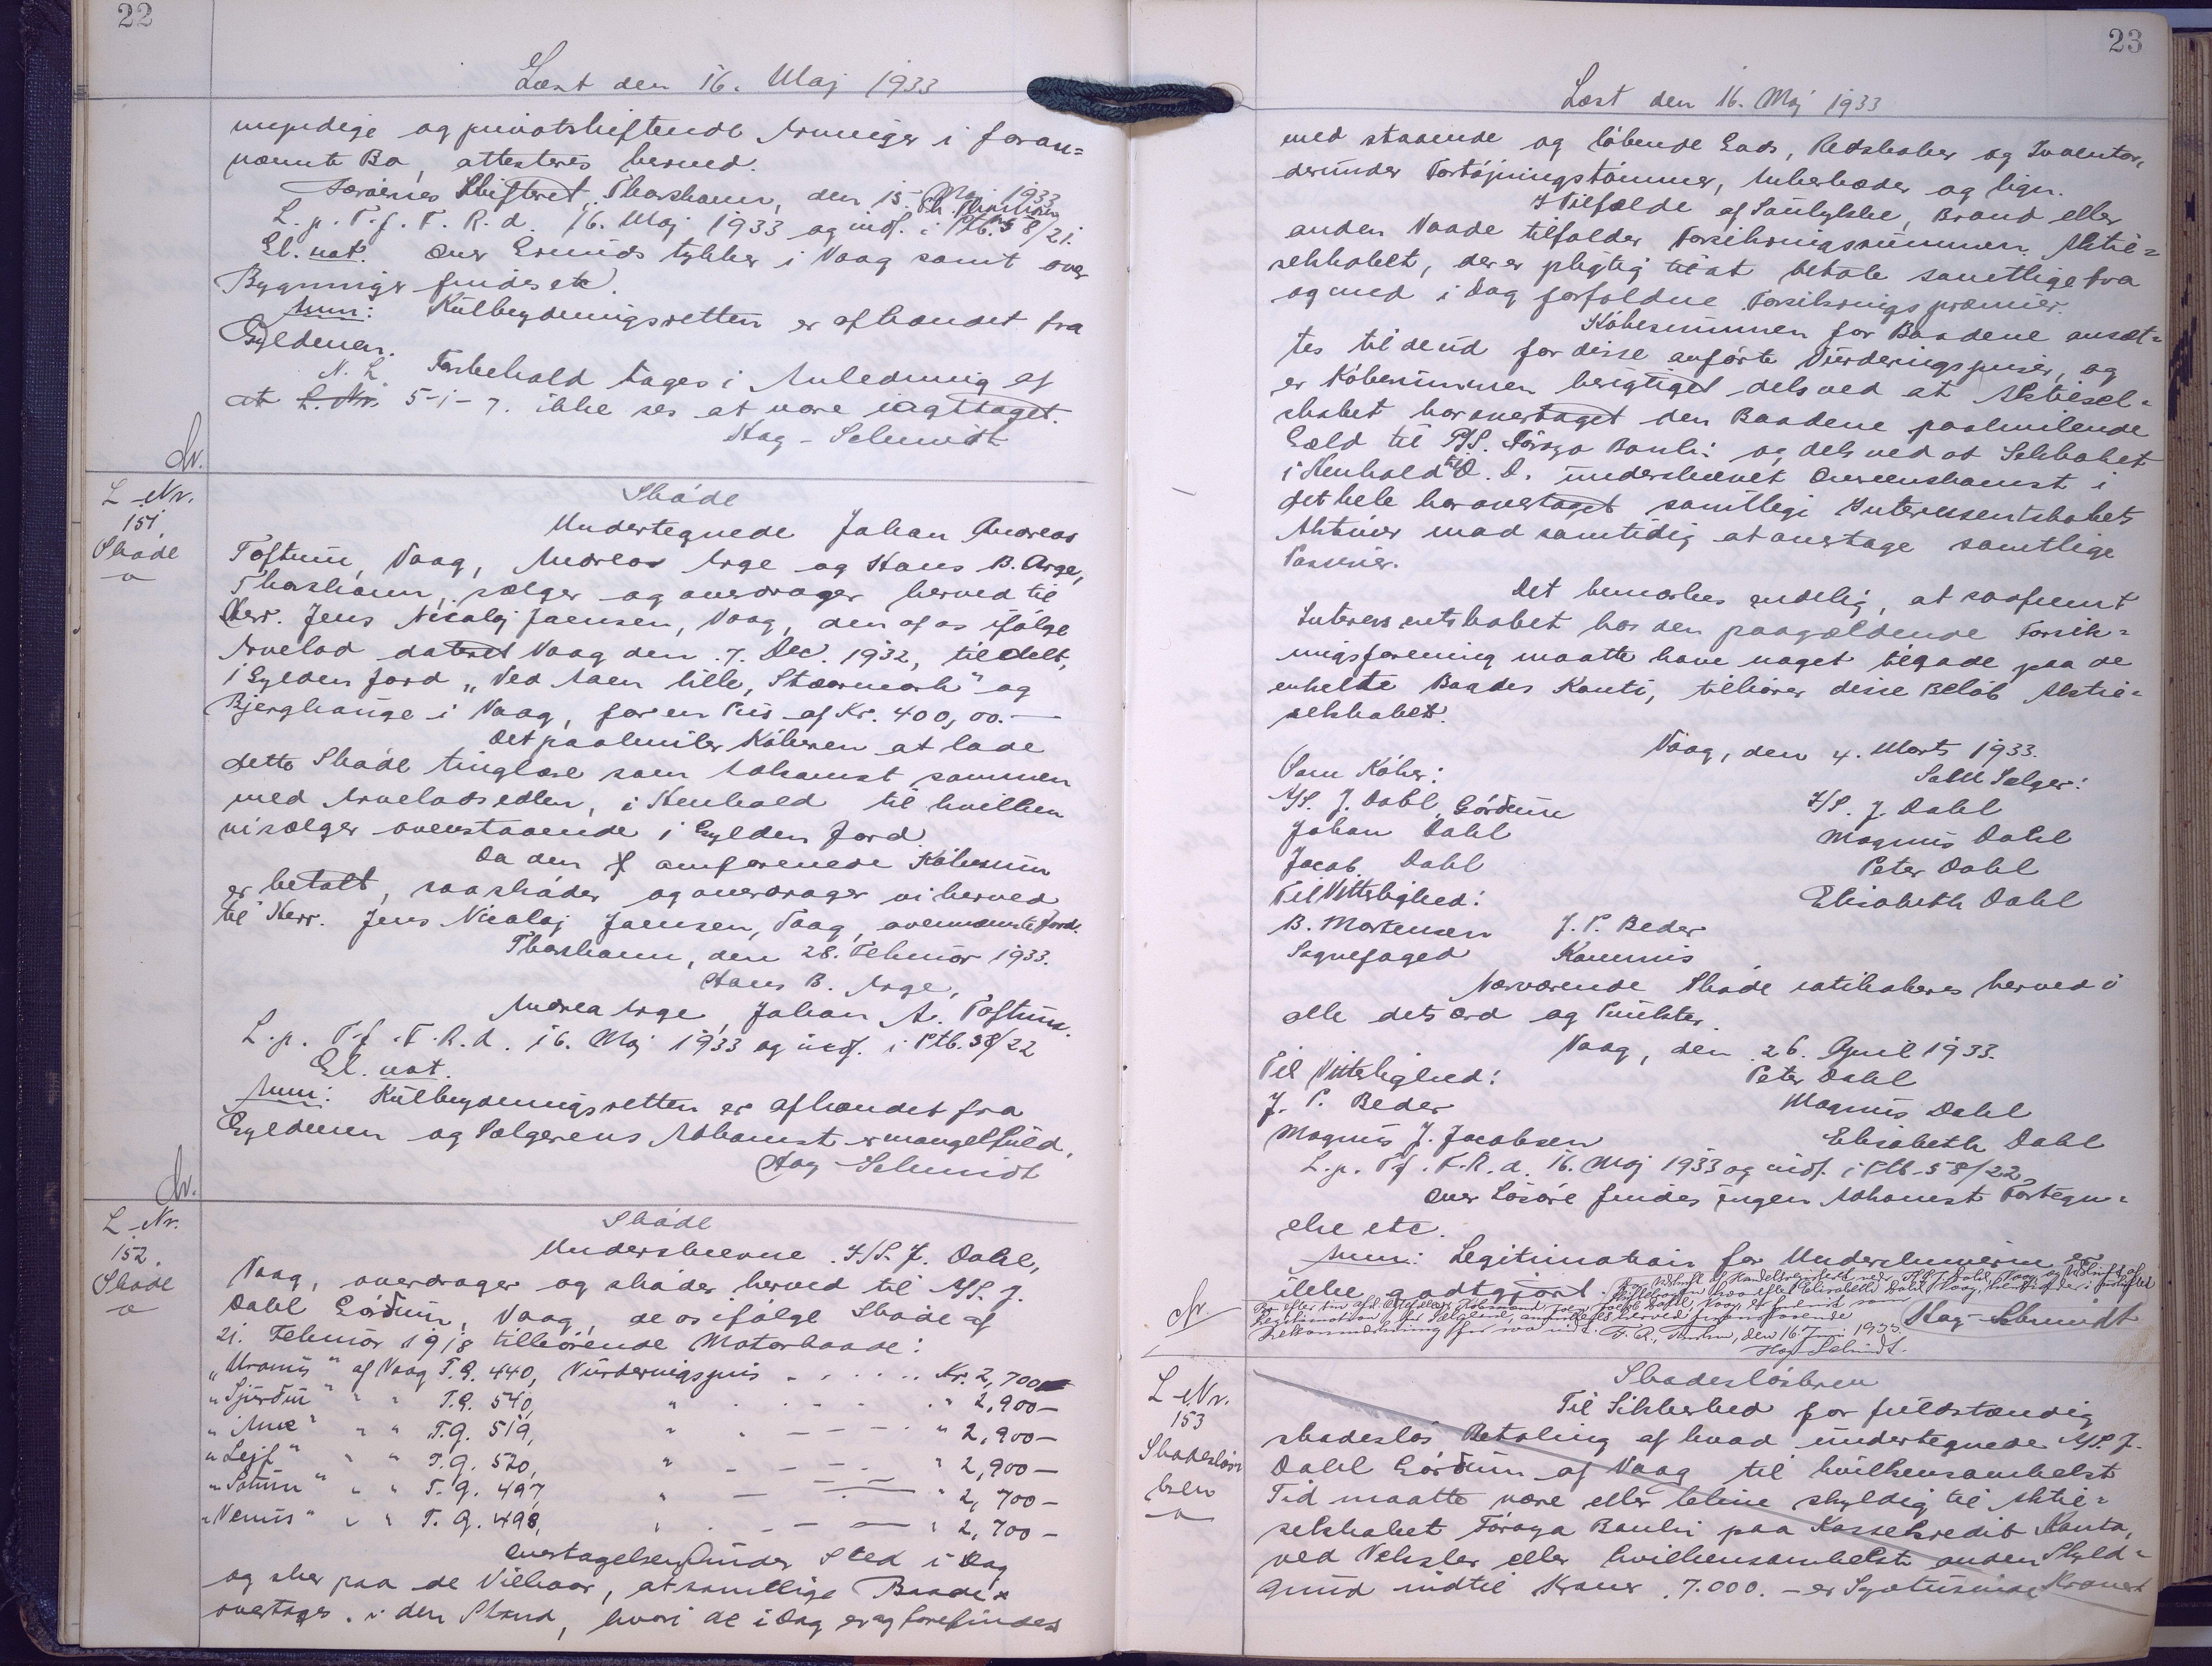 22
Læst den 16. Maj 1933
umyndige og privatskiftende Arvinger i foran=
nævnte Bo, attesteres herved.
Færøernes Skifteret, Thorshavn, den 15. Maj 1933
L. p. T. f. F. R. d. 16. Maj 1933 og indf. i Ptb. 58/21.
El. not. Over Grunds tykker i Vaag samt over
Bygninger findes etc.
Anm: Kulbrydningsretten er afhændet fra
Gyldenen.
N. L.
Forbehold tages i Anledning af
at L. Nr. 5-1-7. ikke ses at være iagttaget.
Hag-Schmidt
L. Nr.
151.
Skøde
Skøde
Undertegnede Johan Andreas
Toftum, Vaag, Andreas Arge og Hans B. Arge,
Thorshavn, sælger og overdrager herved til
Herr. Jens Nicolaj Joensen, Vaag, den af os ifølge
Arvelod dateret Vaag den 7. Dec. 1932, tildelt,
1 Gylden Jord "Ved Aaen lille, Stoormork" og
Bjerghauge i Vaag, for en Pris af Kr. 400,00.—
Det paahviler Køberen at lade
dette Skøde tinglæse som Adkomst sammen
med Arvelodsedlen, i Henhold til hvilken
vi sælger ovenstaaende 1 Gylden Jord.
Da den omførenede Købesum
er betalt, saa skøder og overdrager vi herved
til Herr. Jens Nicolaj Joensen, Vaag, ovennævnte Jord.
Thorshavn, den 28. Februar 1933.
Hans B. Arge,
Andrea Arge, Johan A. Toftum.
L. p. T. f. F. R. d. 16. Maj 1933 og indf. i Ptb. 58/22
El. not.
Anm: Kulbrydningsretten er afhændet fra
Gyldenen og Sælgerens Adkomst er mangelfuld.
Hag-Schmidt
L. Nr.
152.
Skøde
Skøde
Underskrevne I/S. J. Dahl,
Vaag, overdrager og skøder herved til A/S. J.
Dahl Gørdum, Vaag, de os ifølge Skøde af
21. Februar 1918 tilhørende Motorbaade:
"Uranus" af Vaag T.G. 440, Vurderingspris . . . . . Kr. 2,700
"Sjurdur" " " T.G. 540, " . . . . . " 2,900—
"Anne" " " T.G. 519, " . — — — " 2,900—
"Lejf" " " T.G. 520, " — — — " 2,900—
"Saturn" " " T.G. 497, " — — — " 2,700—
"Venus" " " T.G. 498, " . — — — " 2,700—
Overtagelsen finder Sted i Dag
og sker paa de Vilkaar, at samtlige Baade
overtages i den Stand, hvori de i Dag er og forefindes
23
Læst den 16. Maj 1933
med staaende og løbende Gods, Redskaber og Inventar,
derunder Fortøjningstømmer, Ankerkæder og lign.
I Tilfælde af Søulykke, Brand eller
anden Vaade tilfalder Forsikringssummen Aktie=
selskabet, der er pligtig til at betale samtlige fra
og med i Dag forfaldne Forsikringspræmier.
Købesummen for Baadene ansæt=
tes til de ud for disse anførte Vurderingspriser, og
er Købesummen berigtiget dels ved at Aktiesel=
skabet har overtaget den Baadene paahvilende
Gæld til P/S. Føroya Banki og dels ved at Selskabet
i Henhold til D. D. underskrevet Overenskomst i
det hele har overtaget samtlige Interessentskabets
Aktiver mod samtidig at overtage samtlige
Passiver.
Det bemærkes endelig, at saafremt
Interessentskabet hos den paagældende Forsik=
ringsforening maatte have noget tilgode paa de
enkelte Baades Konti, tilhører disse Beløb Aktie=
selskabet.
Vaag, den 4. Marts 1933.
Som Køber: Som Sælger:
A/S. J. Dahl, Gørdum I/S. J. Dahl
Johan Dahl Magnus Dahl
Jacob Dahl Peter Dahl
Til Vitterlighed: Elisabeth Dahl
B. Mortensen J. P. Beder
Sognefoged Kommis
Nærværende Skøde ratihaberes herved i
alle dets Ord og Punkter.
Vaag, den 26. April 1933.
Til Vitterlighed: Peter Dahl
J. P. Beder Magnus Dahl
Magnus J. Jacobsen Elisabeth Dahl
L. p. T. f. F. R. d. 16. Maj 1933 og indf. i Ptb. 58/22.
Over Løsøre findes ingen Adkomst Fortegn=
else etc.
Anm: Legitimation for Underskriverne er
ikke godtgjort.
Hag-Schmidt
F. R., Thavn, den 16. Juni 1933.
Hag-Schmidt.
L. Nr.
153
Skadesløs
brev
Skadesløsbrev
Til Sikkerhed for fuldstændig
skadesløs Betaling af hvad undertegnede A/S. J.
Dahl Gørdum af Vaag til hvilkensomhelst
Tid maatte være eller blive skyldig til Aktie=
selskabet Føroya Banki paa Kassekredit Konto,
ved Veksler eller hvilkensomhelst anden Skyld=
grund indtil Kroner 7.000.— er Syvtusinde Kroner